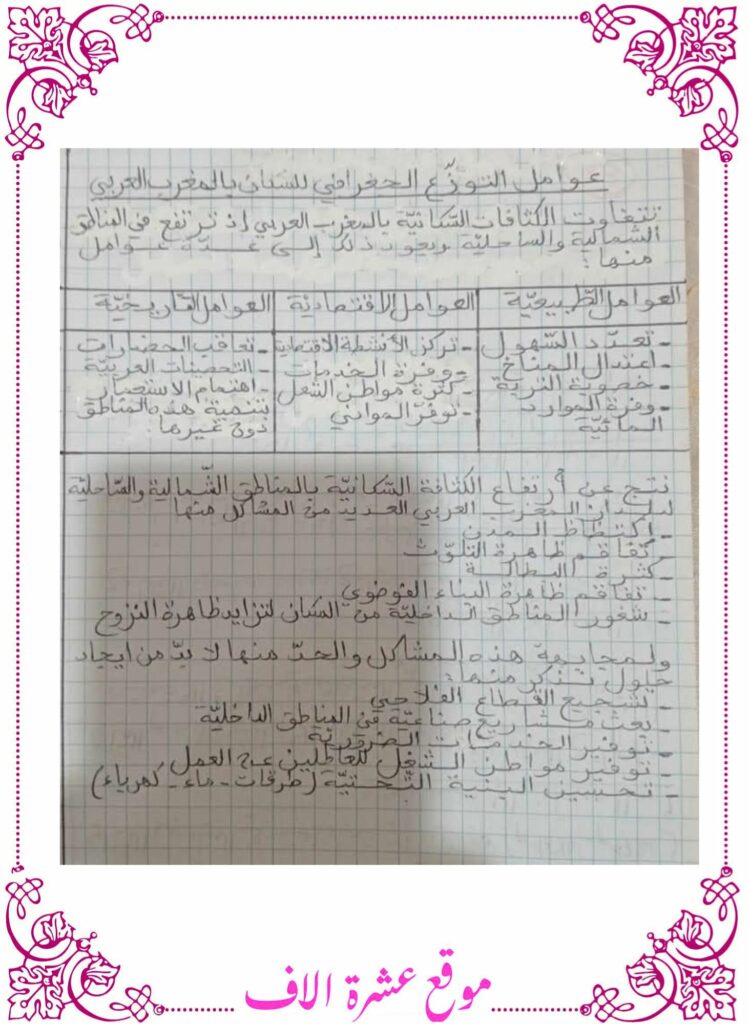 عوامل التوزّع الجغرافي للسكان بالمغرب العربي
تتفاوت الكثافات السّكانيّة بالمغرب العربي إذ ترتفع في المناطق
الشمالية والساحليّة ويعود ذلك إلى عدّة عوامل
منها:
العوامل الطّبيعيّة
- تعدّد السّهول
- اعتدال المناخ
- خصوبة التربة
- وفرة الموارد
المائيّة
العوامل الاقتصاديّة
- تركز الأنشطة الاقتصادية
- وفرة الخدمات
- كثرة مواطن الشغل
- توفّر الموانئ
العوامل التاريخيّة
- تعاقب الحضارات
- التحصينات العربيّة
- اهتمام الاستعمار
بتنمية هذه المناطق
دون غيرها.
نتج عن ارتفاع الكثافة السّكانيّة بالمناطق الشّمالية والسّاحليّة
لبلدان المغرب العربي العديد من المشاكل منها
- اكتظاظ المدن
- تفاقم ظاهرة التلوّث
- كثرة البطالة
- تفاقم ظاهرة البناء الفوضوي
- شغور المناطق الداخليّة من السكان لتزايد ظاهرة النزوح
ولمجابهة هذه المشاكل والحدّ منها لا بدّ من ايجاد
حلول نذكر منها:
- تشجيع القطاع الفلاحي
- بعث مشاريع صناعيّة في المناطق الداخليّة
- توفير الخدمات الضروريّة
- توفير مواطن الشغل للعاطلين عن العمل
- تحسين البنية التّحتيّة (طرقات - ماء - كهرباء)
موقع عشرة الاف